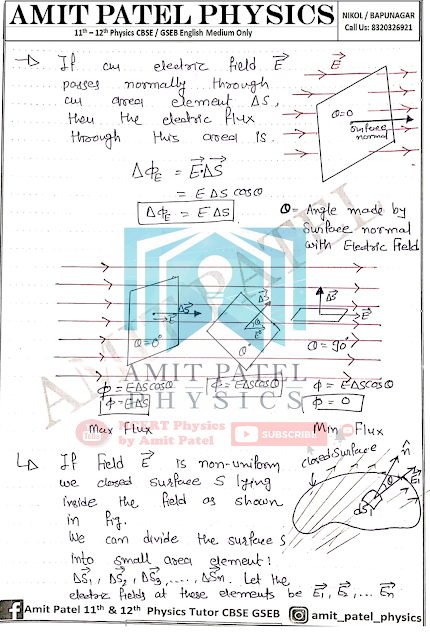 AMIT PATEL PHYSICS
11th – 12th Physics CBSE / GSEB English Medium Only
NIKOL / BAPUNAGAR
Call Us: 8320326921
→ If an electric field E⃗
passes normally through
an area element ΔS,
then the electric flux
through this area is.
E⃗
θ=0
Surface
normal
Δϕ_E = E⃗ΔS⃗
= E ΔS cosθ
Δϕ_E = E ΔS
θ = Angle made by
Surface normal
with Electric Field
θ=0°
ΔS⃗
E⃗
ΔS⃗
θ
E⃗
θ°
ΔS⃗
E⃗
θ=90°
ϕ = EΔScosθ
ϕ = EΔS
Max Flux
ϕ = EΔScosθ
ϕ = EΔScosθ
ϕ = 0
Min Flux
AMIT PATEL
PHYSICS
NCERT Physics
by Amit Patel
SUBSCRIBE
AMIT PATEL
↳ If Field E⃗ is non-uniform
we closed surface S lying
inside the field as shown
in fig.
We can divide the surface S
into small area element:
ΔS⃗1, ΔS⃗2, ΔS⃗3, ....., ΔS⃗n. Let the
electric fields at these elements be E⃗1, E⃗2, ... E⃗n
closed Surface
n̂
θ
E⃗1
dS
Amit Patel 11th & 12th Physics Tutor CBSE GSEB
amit_patel_physics